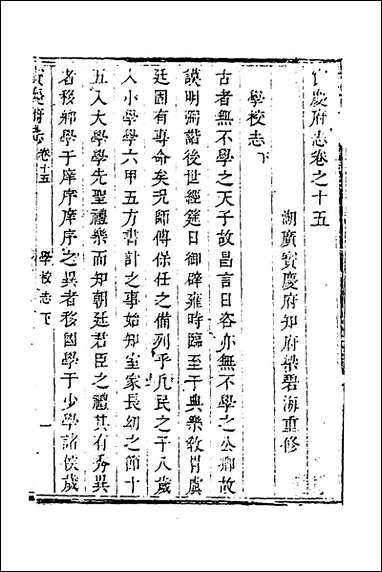 寶慶府志卷之十五
湖廣寶慶府知府梁碧海重修
學校志下
古者無不學之天子故昌言日咨亦無不學之公卿故
謨明弼諧後世經筵日御辟雍時臨至于典樂敎胄虞
廷固有專命矣況師傅保任之備列乎凡民之子八歲
入小學學六甲五方書計之事始知室家長幼之節十
五入大學學先聖禮樂而知朝廷君臣之禮其有秀異
者移鄉學于庠序庠序之異者移國學于少學諸侯歲
寶慶府志 卷十五 學校志下 一